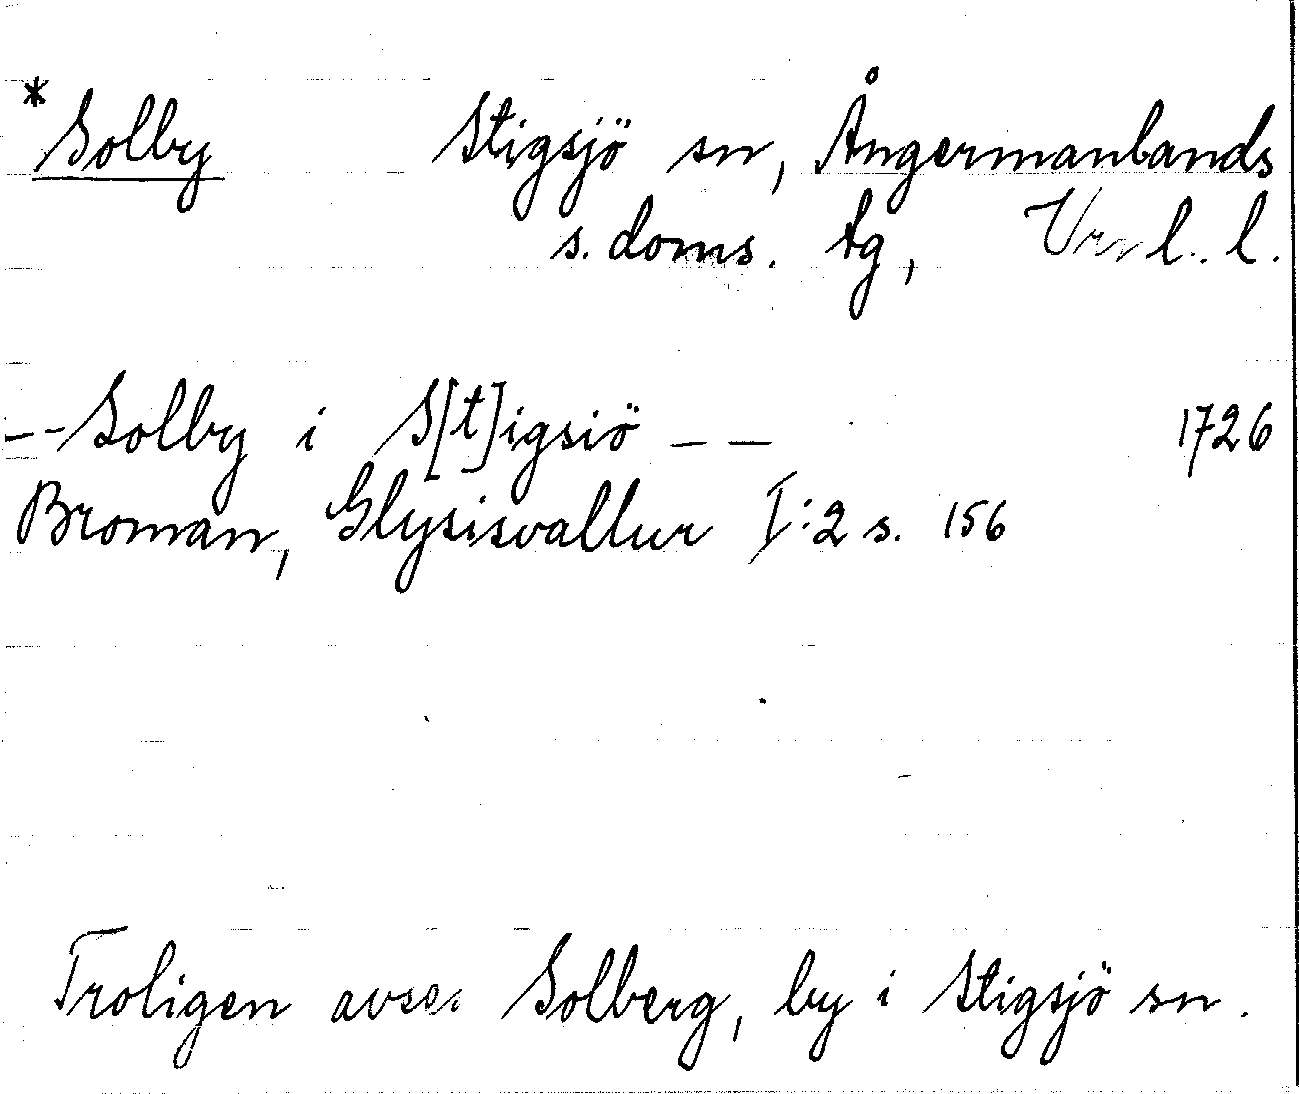 * Solby Stigsjö sn, Ångermanlands
s. doms. tg, Vn l. l.
-- Solby i S[t]igsiö -- 1726
Broman, Glysisvallur I:2 s. 156
Troligen avses Solberg, by i Stigsjö sn.